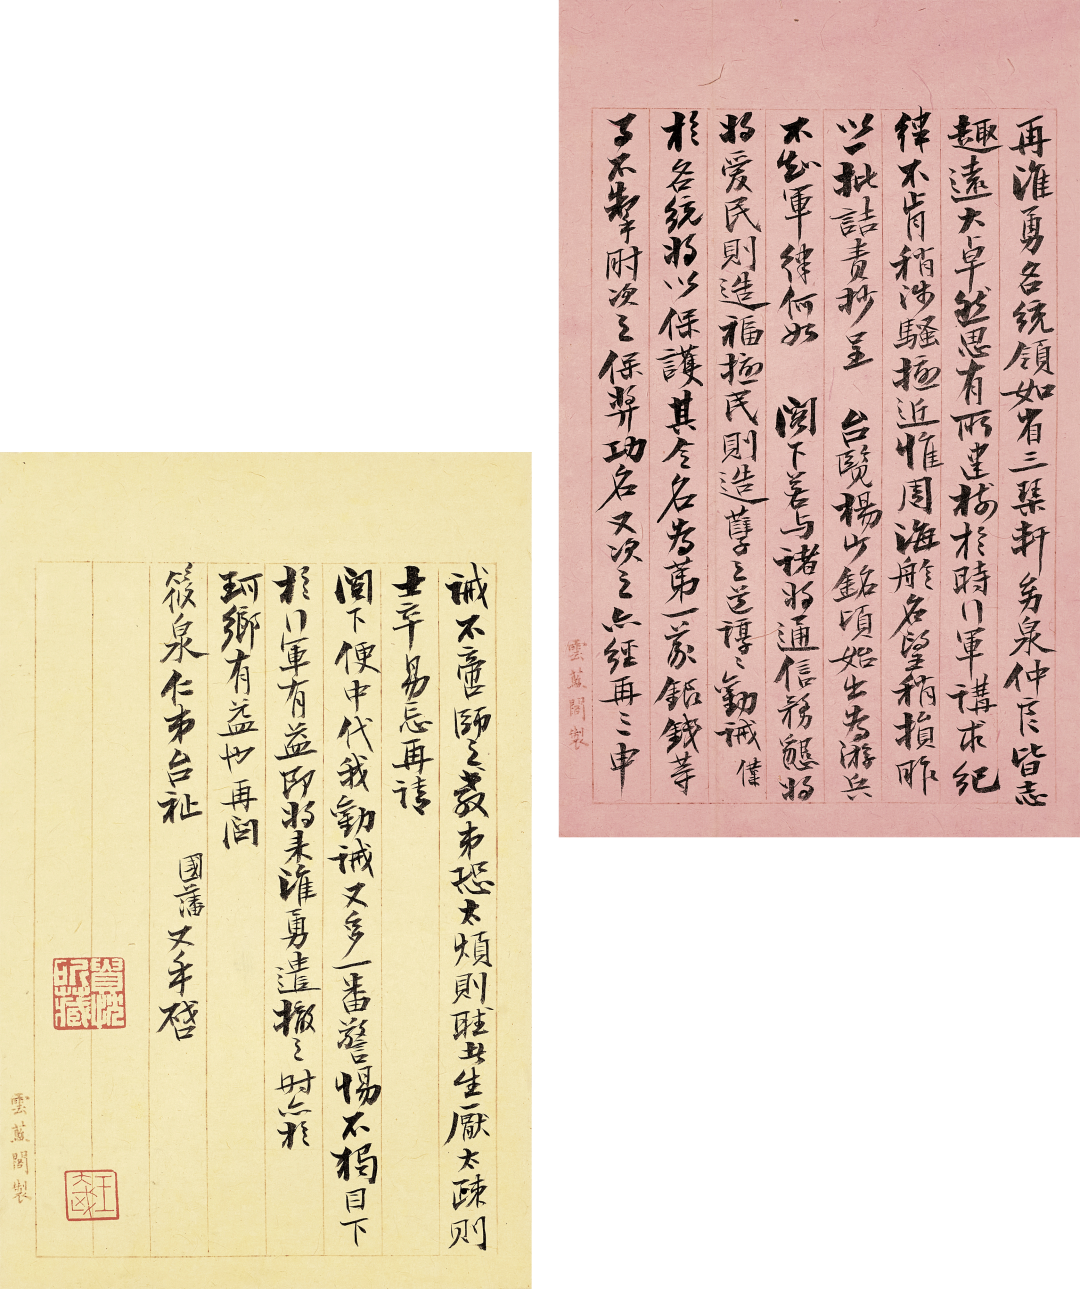 再淮勇各統領如省三琴軒幼泉仲良皆志
趣遠大卓然思有所建樹於時行軍講求紀
律不肯稍涉騷擾近惟周海舲名望稍損昨
以一批詰責抄呈 台覽楊少銘頃始出為游兵
不知軍律何如 閣下若與諸將通信務懇將
將愛民則造福擾民則造孽之道諄諄勸誡僕
於各統將以保護其令名為第一義銀錢等
事不掣肘次之保舉功名又次之亦經再三申
雲藍閣製
誡不啻師之教弟恐太煩則聽者生厭太疎則
士卒易忘再請
閣下便中代我勸誡又多一番警惕不獨目下
於行軍有益即將來淮勇遣撤之時亦於
珂鄉有益也再問
筱泉仁弟台祉 國藩又手啓
雲藍閣製